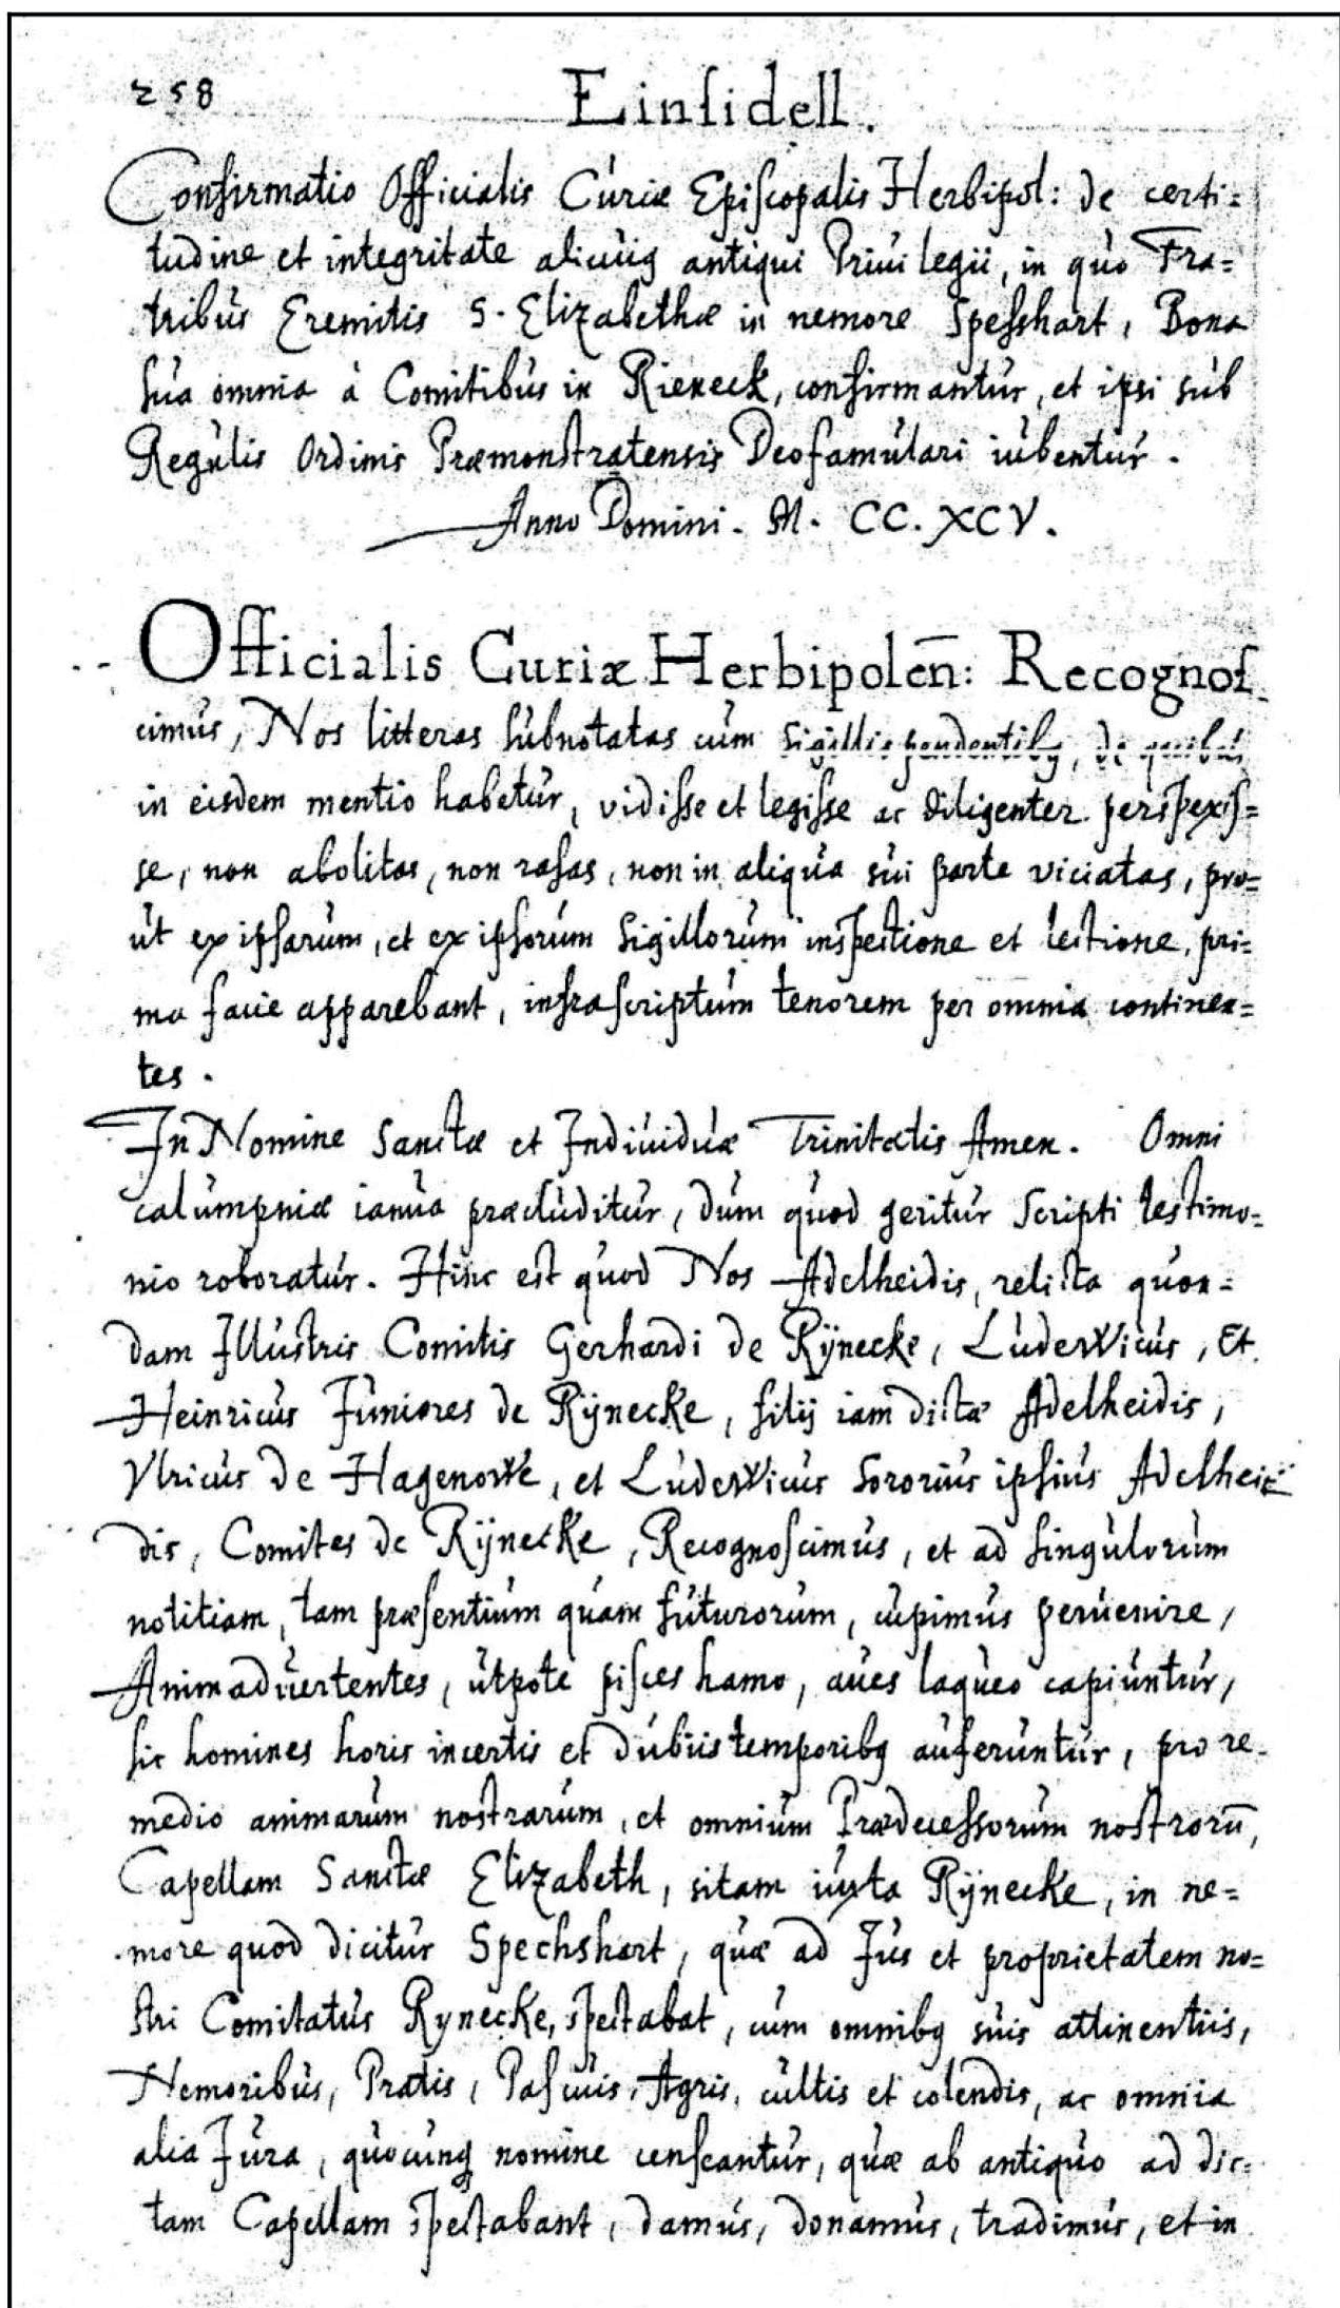 258
Einsidell.
Confirmatio Officialis Curiæ Episcopalis Herbipol: de certi=
tudine et integritate alicuiq antiqui Priuilegii, in quo Fra=
tribus Eremitis S. Elizabethæ in nemore Spesshart, Bona
sua omnia à Comitibus in Rieneck, confirmantur, et ipsi sub
Regulis Ordinis Præmonstratensis Deo famulari iubentur.
Anno Domini. M. CC. XCV.
Officialis Curiæ Herbipoleñ: Recognos
cimus, Nos litteras subnotatas cum sigillis pendentibq, de quibus
in eisdem mentio habetur, vidisse et legisse ac diligenter perspexis=
se, non abolitas, non rasas, non in aliqua sui parte viciatas, pro=
ut ex ipsarum, et ex ipsorum Sigillorum inspectione et lectione, pri=
ma facie apparebant, infrascriptum tenorem per omnia continen=
tes.
In Nomine Sanctæ et Indiuiduæ Trinitatis Amen. Omni
calumpniæ ianua præcluditur, dum quod geritur Scripti testimo=
nio roboratur. Hinc est quod Nos Adelheidis, relicta quon=
dam Illustris Comitis Gerhardi de Rÿnecke, Ludewicus, Et
Heinricus Juniores de Rÿnecke, filij iam dictæ Adelheidis,
Vlricus de Hagenowe, et Ludewicus Sororius ipsius Adelhei=
dis, Comites de Rÿnecke, Recognoscimus, et ad singulorum
notitiam, tam præsentium quam futurorum, cupimus peruenire,
Animaduertentes, utpote pisces hamo, aues laqueo capiuntur,
sic homines horis incertis et dubiis temporibq auferuntur, pro re=
medio animarum nostrarum, et omnium Prædecessorum nostrorū,
Capellam Sanctæ Elizabeth, sitam iuxta Rÿnecke, in ne=
more quod dicitur Spechshart, quæ ad Jus et proprietatem no=
stri Comitatus Rynecke, spectabat, cum omnibq suis attinentiis,
Nemoribus, Pratis, Pascuis, Agris, cultis et colendis, ac omnia
alia Jura, quocunq nomine censeantur, quæ ab antiquo ad dic=
tam Capellam spectabant, damus, donamus, tradimus, et in